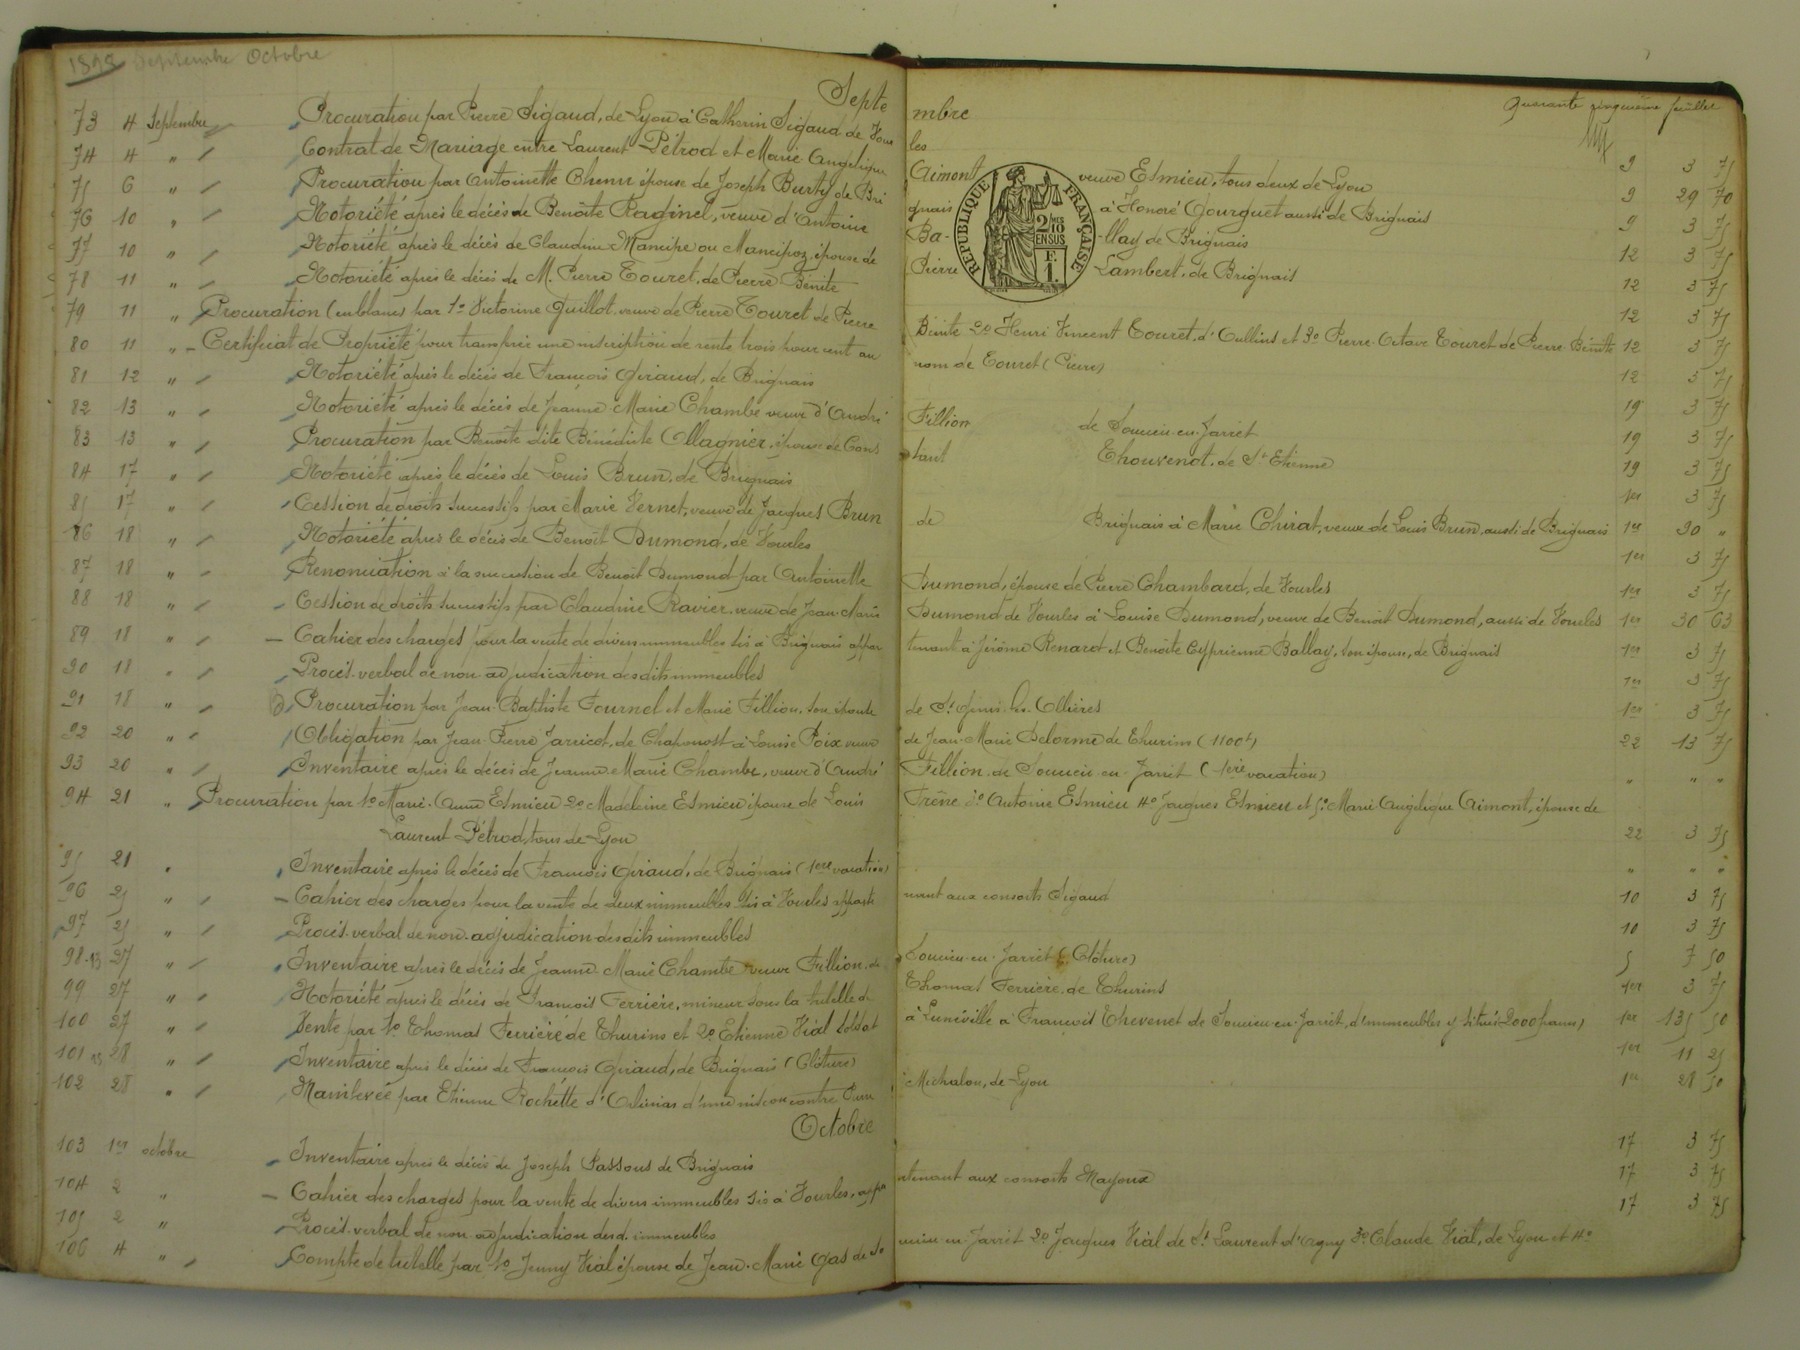 1898 Septembre Octobre
Quarante cinquième feuillet
Septembre
73 4 Septembre Procuration par Pierre Sigaud, de Lyon à Catherin Sigaud de Vourles 9 3 75
74 4 " Contrat de Mariage entre Laurent Pétrod et Marie Angélique Aimont veuve Esmieu, tous deux de Lyon 9 29 70
75 6 " Procuration par Antoinette Chenu épouse de Joseph Burty de Brignais à Honoré Gourguet aussi de Brignais 9 3 75
76 10 " Notoriété après le décès de Benoîte Raginel, veuve d'Antoine Ba-llay de Brignais 12 3 75
77 10 " Notoriété après le décès de Claudine Mancipe ou Mancipoz épouse de Pierre Lambert, de Brignais 12 3 75
78 11 " Notoriété après le décès de M. Pierre Touret, de Pierre Bénite 12 3 75
79 11 " Procuration (en blanc) par 1° Victorine Guillot veuve de Pierre Touret de Pierre Bénite 2° Henri Vincent Touret, d'Oullins et 3° Pierre Octave Touret de Pierre Bénite 12 3 75
80 11 " Certificat de Propriété pour transférer une inscription de rente trois pour cent au nom de Touret (Pierre) 12 3 75
81 12 " Notoriété après le décès de François Giraud, de Brignais 19 3 75
82 13 " Notoriété après le décès de Jeanne Marie Chambe veuve d'André Fillion de Soucieu-en-Jarret 19 3 75
83 13 " Procuration par Benoîte dite Bénédicte Magnier, épouse de Constant Thouvenot, de St Etienne 19 3 75
84 17 " Notoriété après le décès de Louis Brun, de Brignais 1er 3 75
85 17 " Cession de droits successifs par Marie Vernet, veuve de Jacques Brun de Brignais à Marie Chirat, veuve de Louis Brun, aussi de Brignais 1er 30 "
86 18 " Notoriété après le décès de Benoît Dumond, de Vourles 1er 3 75
87 18 " Renonciation à la succession de Benoit Dumond par Antoinette Dumond, épouse de Pierre Chambard, de Vourles 1er 3 75
88 18 " Cession de droits successifs par Claudine Ravier, veuve de Jean Marie Dumond de Vourles à Louise Dumond, veuve de Benoit Dumond, aussi de Vourles 1er 30 63
89 18 " Cahier des charges pour la vente de divers immeubles sis à Brignais appartenant à Jérôme Renard et Benoîte Cyprienne Ballay, son épouse, de Brignais 1er 3 75
90 18 " Procès-verbal de non adjudication desdits immeubles 1er 3 75
91 18 " Procuration par Jean-Baptiste Fournel et Marie Fillion, son épouse de St Genis-les-Ollières 1er 3 75
92 20 " Obligation par Jean-Pierre Jarricot, de Chaponost à Louise Poix veuve de Jean-Marie Delorme de Thurins (1100f) 22 13 75
93 20 " Inventaire après le décès de Jeanne Marie Chambe, veuve d'André Fillion de Soucieu-en-Jarret (1ère vacation) " " "
94 21 " Procuration par 1° Marie-Anne Esmieu 2° Madeleine Esmieu épouse de Louis Frêne 3° Antoine Esmieu 4° Jacques Esmieu et 5° Marie Angélique Aimont, épouse de
Laurent Pétrod, tous de Lyon 22 3 75
95 21 " Inventaire après le décès de François Giraud, de Brignais (1ere vacation) " " "
96 25 " Cahier des charges pour la vente de deux immeubles sis à Vourles appartenant aux consorts Sigaud 10 3 75
97 25 " Procès-verbal de non-adjudication desdits immeubles 10 3 75
98-93 27 " Inventaire après le décès de Jeanne-Marie Chambe veuve Fillion, de Soucieu-en-Jarret (Clôture) 5 7 50
99 27 " Notoriété après le décès de François Ferrière, mineur sous la tutelle de Thomas Ferrière, de Thurins 1er 3 75
100 27 " Vente par 1° Thomas Ferrière de Thurins et 2° Etienne Vial soldat à Lunéville à François Thevenet de Soucieu-en-Jarret, d'immeubles y situés (2000 francs) 1er 135 50
101 28 " Inventaire après le décès de François Giraud, de Brignais (Clôture) 1er 11 25
102 28 " Mainlevée par Etienne Rochette d'Orliénas d'une inscon contre Michalon, de Lyon 1er 28 50
Octobre
103 1er octobre Inventaire après le décès de Joseph Passous de Brignais 17 3 75
104 2 " Cahier des charges pour la vente de divers immeubles sis à Vourles, appartenant aux consorts Mayoux 17 3 75
105 2 " Procès-verbal de non adjudication desd. immeubles 17 3 75
106 4 " Compte de tutelle par 1° Jenny Vial épouse de Jean-Marie Gas de Soucieu-en-Jarret 2° Jacques Vial de St Laurent d'Agny 3° Claude Vial, de Lyon et 4°
REPUBLIQUE FRANÇAISE
2/10MES EN SUS
F. 1